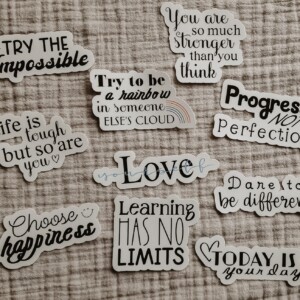 TRY THE
impossible
You are
so much
stronger
than you
think
Try to be
a rainbow
in someone
ELSE'S CLOUD
Progress
NOT
Perfection
life is
tough
but so are
you
Love
yourself
Dare to
be different
Choose
happiness
Learning
HAS NO
LIMITS
TODAY IS
your day